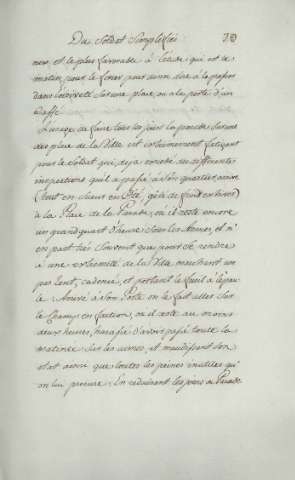 Du Soldat Simplifié
39
ner, et le plus favorable à l'étude; qui est le
matin, pour le livrer pour ainsi dire à le passer
dans l'oisiveté sur une place, ou à la porte d'un
Caffé.
L'usage de faire tous les jours la parade sur une
des place de la Ville est extrêmement fatigant
pour le Soldat qui, déja excédé des différentes
inspections qu'il a passé à son quartier arrive
(tout en sueur en Été, gelé de froid en hiver)
à la Place de la Parade, où il reste encore
un grand quart d'heure sous les Armes, et n'
en part très souvent que pour se rendre
à une extrémité de la Ville marchant un
pas lent, cadencé, et portant le fusil à l'épau
le. Arrivé à son Poste on le fait aller sur
le Champ en faction, où il reste au moins
deux heures, harassé d'avoir passé toute la
matinée sur les armes, et maudissant son
état ainsi que toutes les peines inutiles qu'
on lui procure. En réduisant les jours de Parade